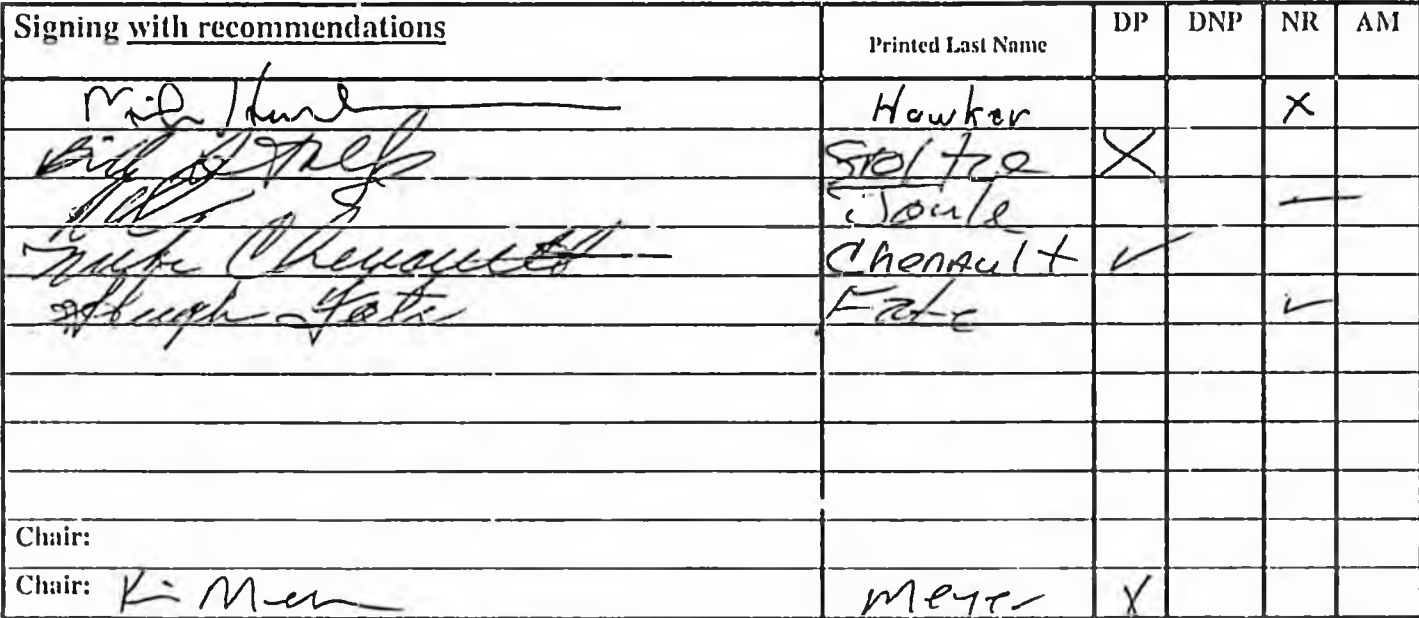 Signing with recommendations Printed Last Name DP DNP NR AM
Hawker X
Bill Stoltze X
Joule —
Mike Chenault Chenault ✓
Hugh Fate Fate ✓
Chair:
Chair: Meyer X